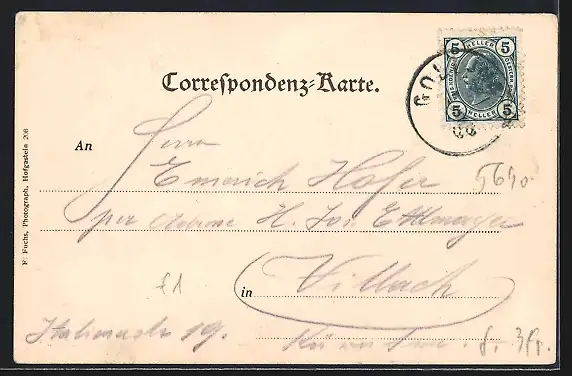 5 HELLER 5
5 HELLER 5
GOL
Correspondenz-Karte.
An
Herrn
Emerich Hofer
5640.
per Adresse H. Jos. Ettlmayer
in Villach
£1
Italienerstr 19.
F. Fuchs, Photograph, Hofgastein 208